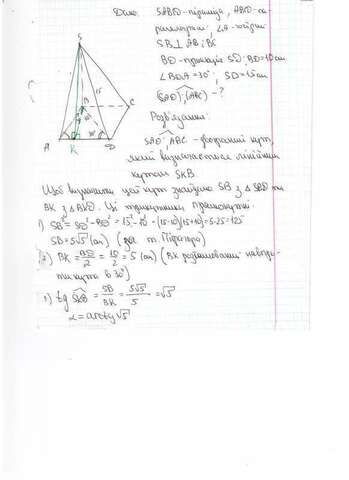 Дано: SABCD-піраміда, ABCD-па-
ралелограм, ∠A-гострий
SB⊥AB; BC
BD-проекція SD; BD=10см
∠BDA=30°; SD=15см
(SAD);(ABC)-?
Розв'язання:
SAD;ABC - двогранний кут,
який визначається лінійним
кутом SKB.
Щоб визначити цей кут знайдемо SB з △SBD та
BK з △BKD. Ці трикутники прямокутні.
1) SB²=SD²-BD²=15²-10²=(15-10)(15+10)=5·25=125
SB=5√5 (см) (за т. Піфагора)
2) BK=BD/2=10/2=5 (см) (BK розташований навпро-
ти кута в 30°)
3) tg SKB=SB/BK=5√5/5=√5
α=arctg√5
S
15
B
C
A
K
D
10
30°